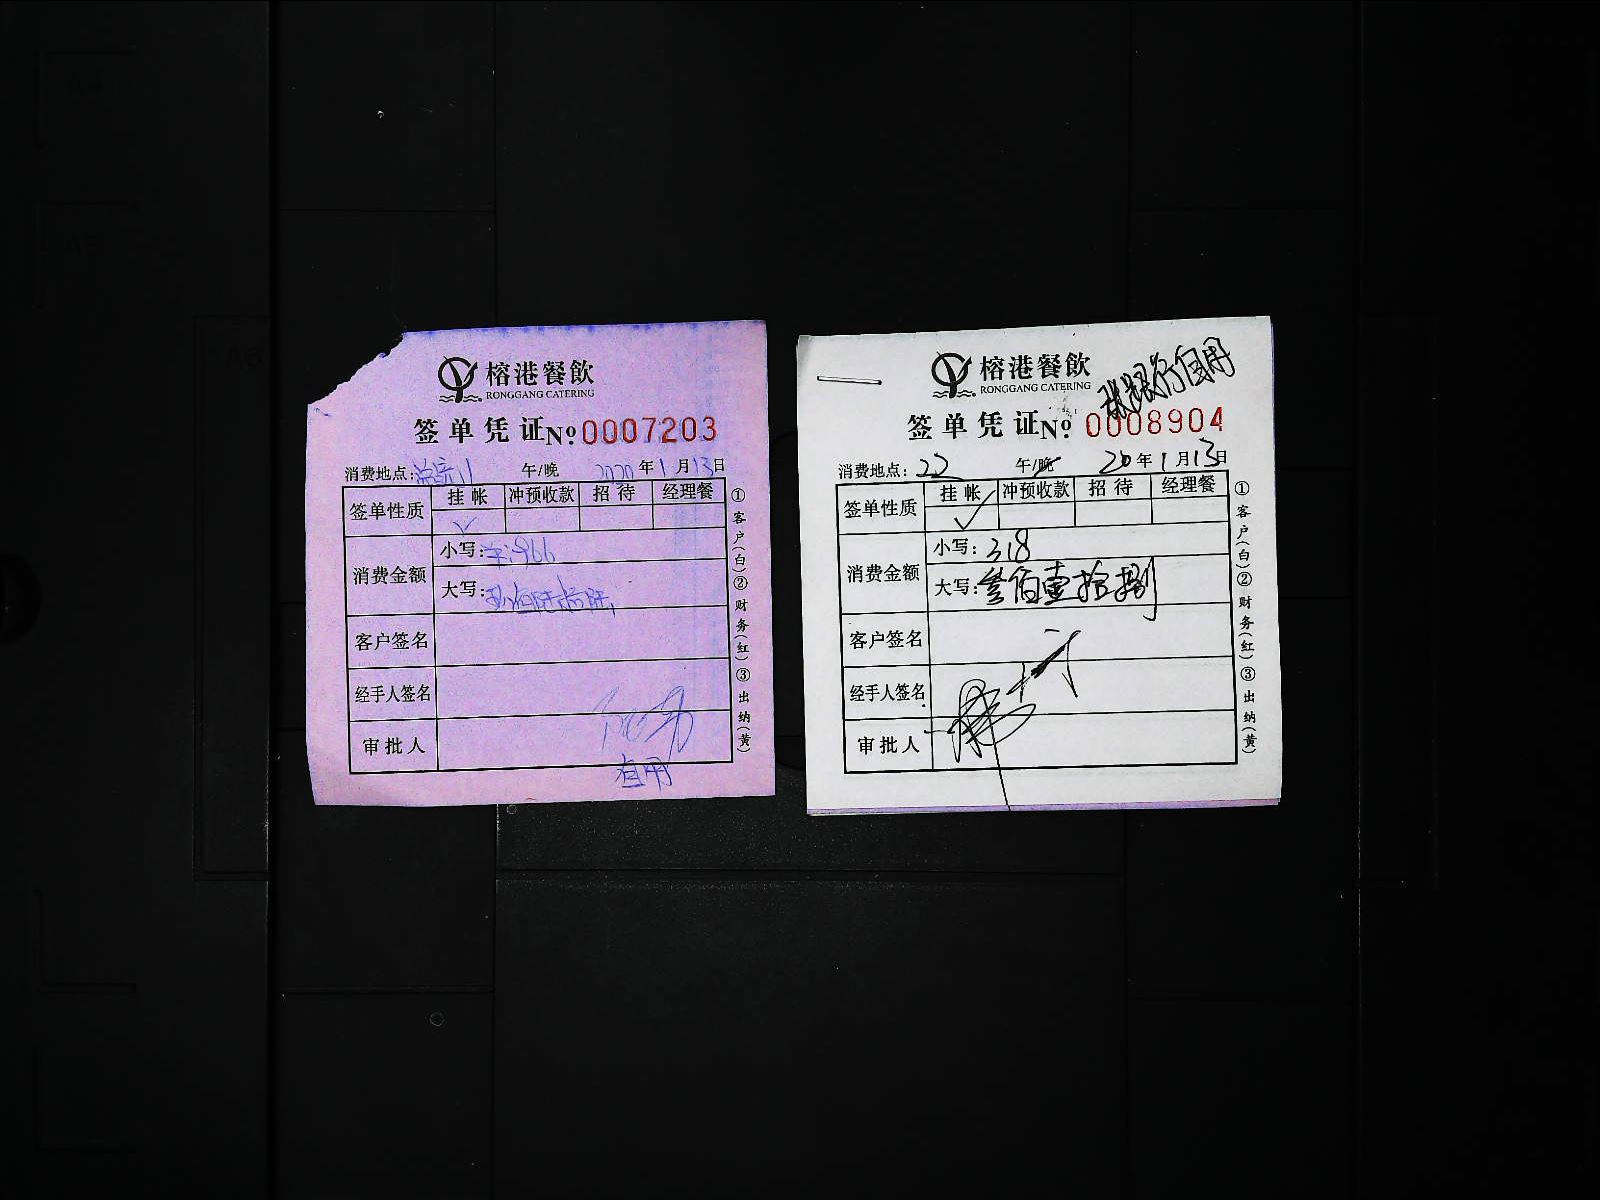 榕港餐飲
RONGGANG CATERING
签单凭证 No 0007203
消费地点: 午/晚 2020年1月13日
签单性质 挂帐 冲预收款 招待 经理餐
✓
消费金额 小写: 966
大写: 佰陆拾陆
客户签名
经手人签名
审批人
自用
①客户(白)②财务(红)③出纳(黄)
榕港餐飲
RONGGANG CATERING
银行自用
签单凭证 No 0008904
消费地点: 22 午/晚 20年1月13日
签单性质 挂帐 冲预收款 招待 经理餐
✓
消费金额 小写: 318
大写: 叁佰壹拾捌
客户签名
经手人签名
审批人
①客户(白)②财务(红)③出纳(黄)